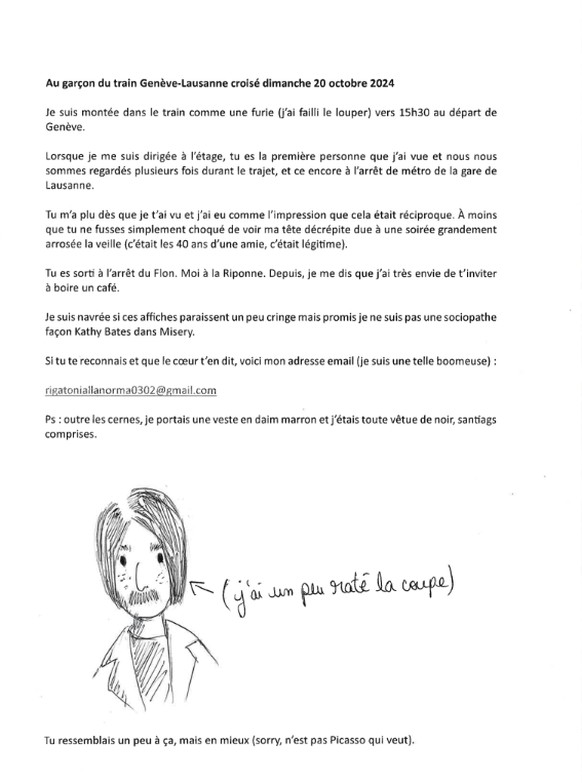 Au garçon du train Genève-Lausanne croisé dimanche 20 octobre 2024
Je suis montée dans le train comme une furie (j'ai failli le louper) vers 15h30 au départ de
Genève.
Lorsque je me suis dirigée à l'étage, tu es la première personne que j'ai vue et nous nous
sommes regardés plusieurs fois durant le trajet, et ce encore à l'arrêt de métro de la gare de
Lausanne.
Tu m'a plu dès que je t'ai vu et j'ai eu comme l'impression que cela était réciproque. À moins
que tu ne fusses simplement choqué de voir ma tête décrépite due à une soirée grandement
arrosée la veille (c'était les 40 ans d'une amie, c'était légitime).
Tu es sorti à l'arrêt du Flon. Moi à la Riponne. Depuis, je me dis que j'ai très envie de t'inviter
à boire un café.
Je suis navrée si ces affiches paraissent un peu cringe mais promis je ne suis pas une sociopathe
façon Kathy Bates dans Misery.
Si tu te reconnais et que le cœur t'en dit, voici mon adresse email (je suis une telle boomeuse) :
rigatoniallanorma0302@gmail.com
Ps : outre les cernes, je portais une veste en daim marron et j'étais toute vêtue de noir, santiags
comprises.
(j'ai un peu raté la coupe)
Tu ressemblais un peu à ça, mais en mieux (sorry, n'est pas Picasso qui veut).